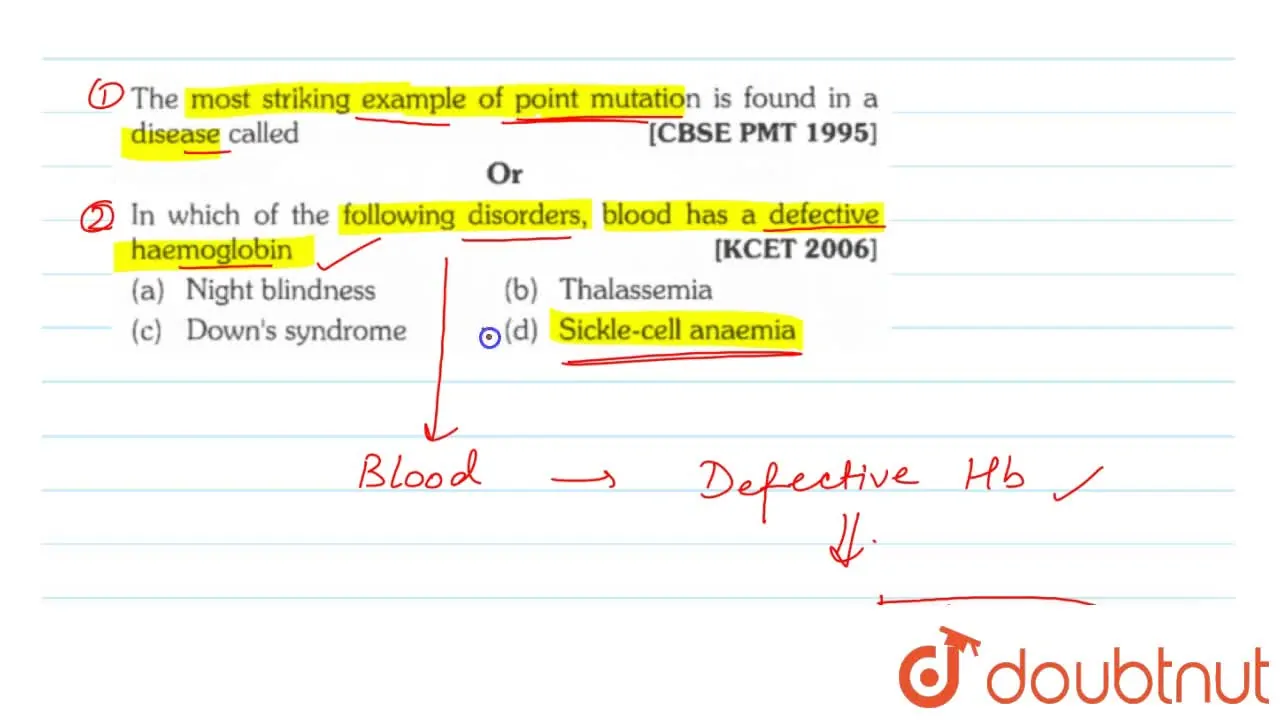 ① The most striking example of point mutation is found in a
disease called [CBSE PMT 1995]
Or
② In which of the following disorders, blood has a defective
haemoglobin [KCET 2006]
(a) Night blindness (b) Thalassemia
(c) Down's syndrome (d) Sickle-cell anaemia
Blood → Defective Hb ✓
doubtnut